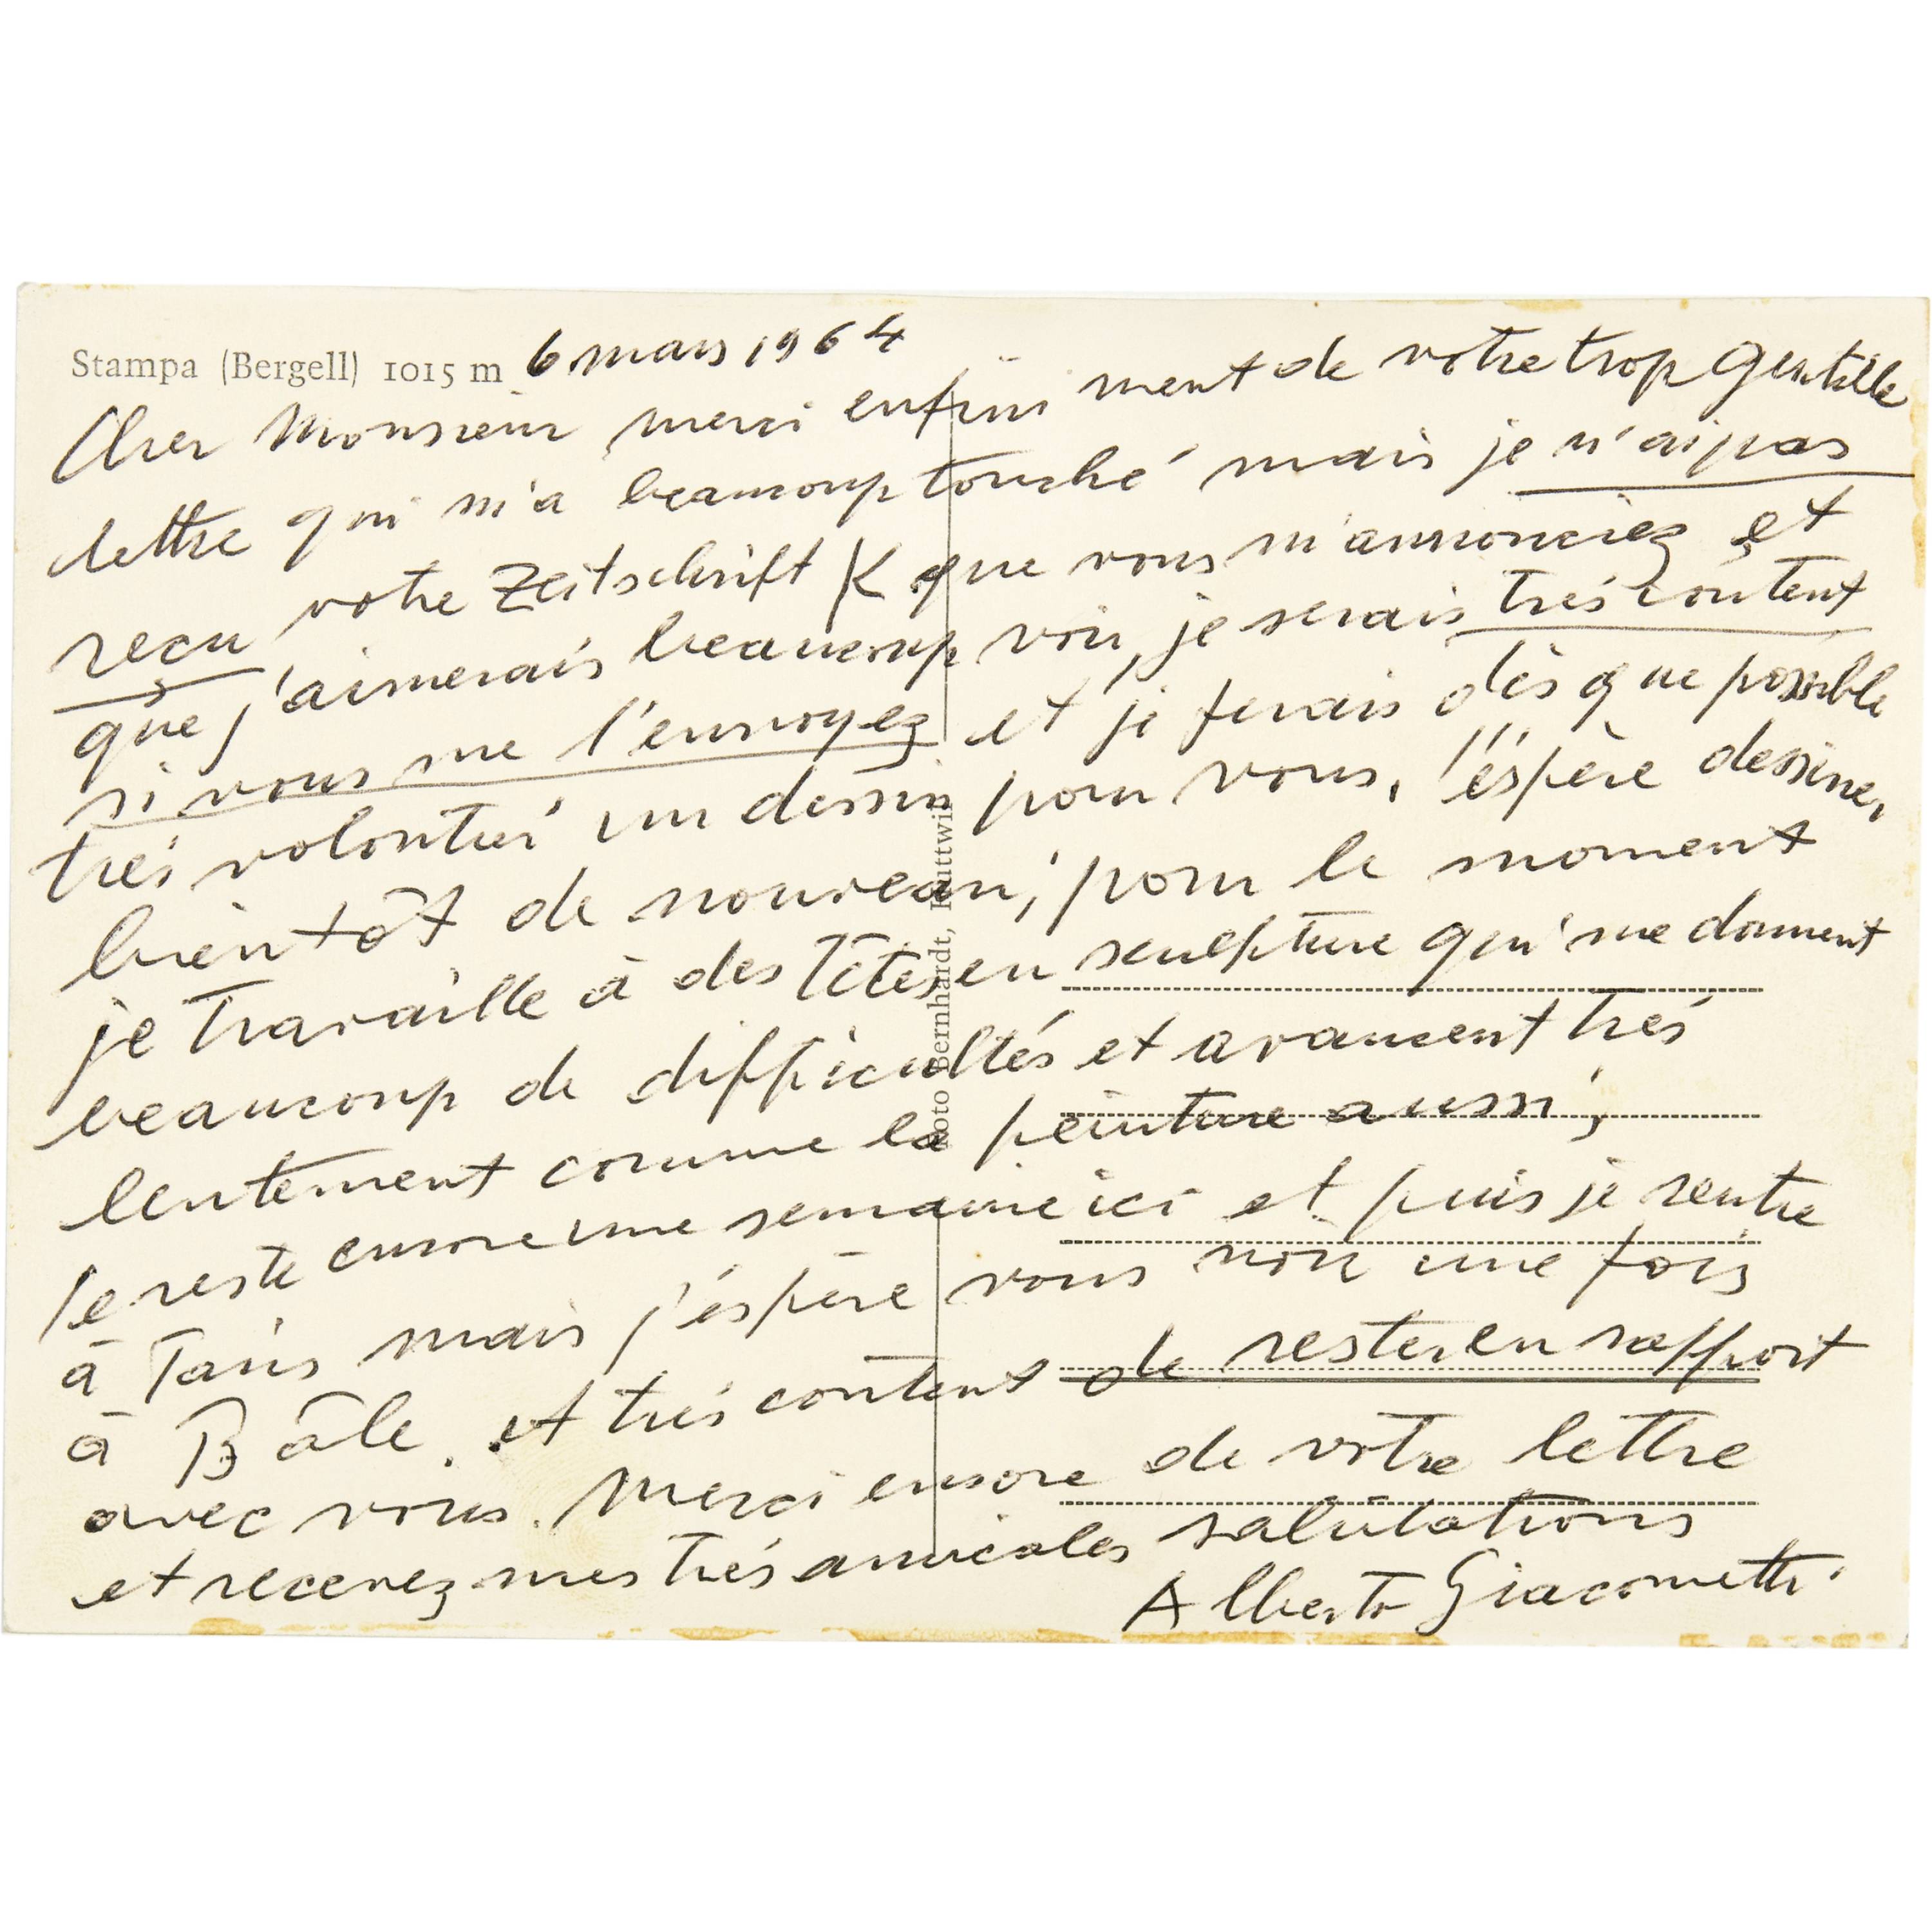 Stampa (Bergell) 1015 m 6 mars 1964
Cher Monsieur merci enfiniment de votre trop gentille
lettre qui m'a beaucoup touché mais je n'ai pas
reçu votre Zeitschrift K que vous m'annonciez et
que j'aimerais beaucoup voir, je serais trés content
si vous me l'envoyez et je ferais dès que possible
trés volontier un dessin pour vous, j'éspère dessiner
bientôt de nouveau, pour le moment
je travaille à des têtes en sculpture qui me donnent
beaucoup de difficultés et avancent trés
lentement comme la peinture aussi,
Je reste encore une semaine ici et puis je rentre
à Paris mais j'éspère vous voir une fois
à Bâle. et trés content de rester en rapport
avec vous. Merci encore de votre lettre
et recevez mes trés amicales salutations
Alberto Giacometti
Foto Bernhardt, Huttwil